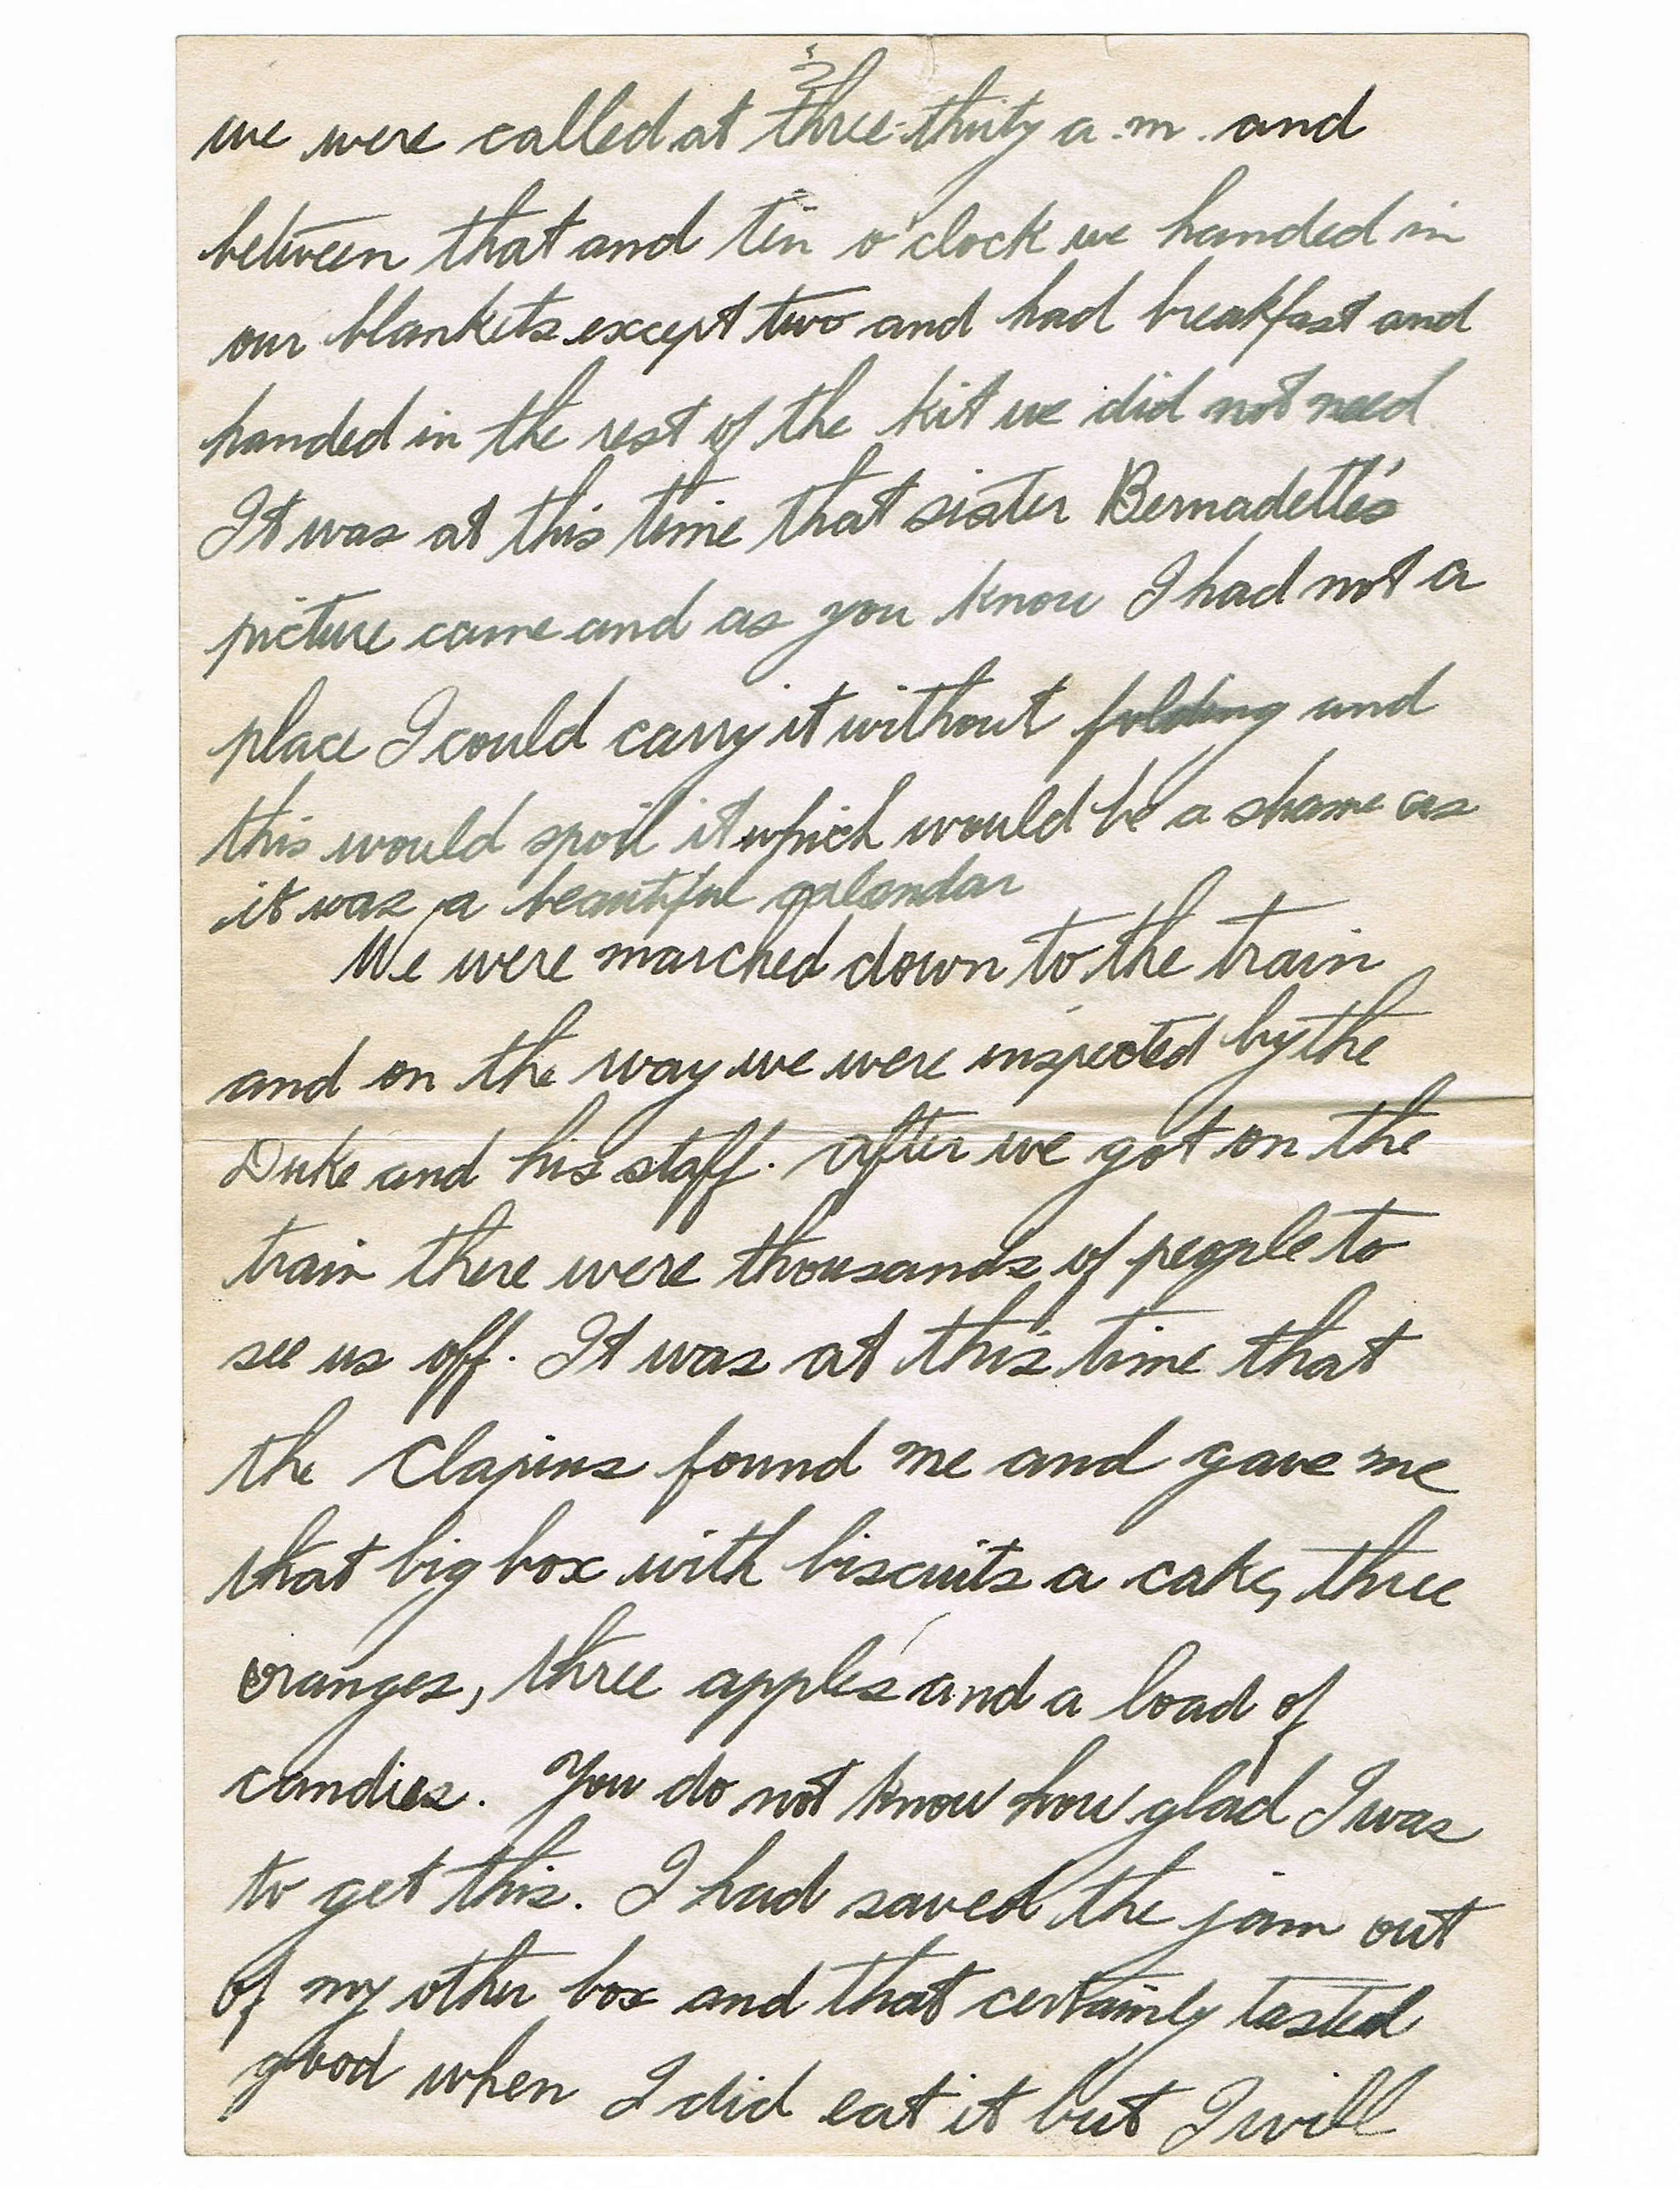 3
we were called at three-thirty a.m. and
between that and ten o'clock we handed in
our blankets except two and had breakfast and
handed in the rest of the kit we did not need
It was at this time that sister Bernadette's
picture came and as you know I had not a
place I could carry it without folding and
this would spoil it which would be a shame as
it was a beautiful calendar
We were marched down to the train
and on the way we were inspected by the
Duke and his staff. After we got on the
train there were thousands of people to
see us off. It was at this time that
the found me and gave me
that big box with biscuits a cake, three
oranges, three apples and a load of
candies. You do not know how glad I was
to get this. I had saved the jam out
of my other box and that certainly tasted
good when I did eat it but I will